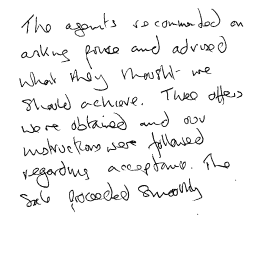 The agents recommended an
asking price and advised
what they thought we
should achieve. Three offers
were obtained and our
instructions were followed
regarding acceptance. The
Sale proceeded smoothly